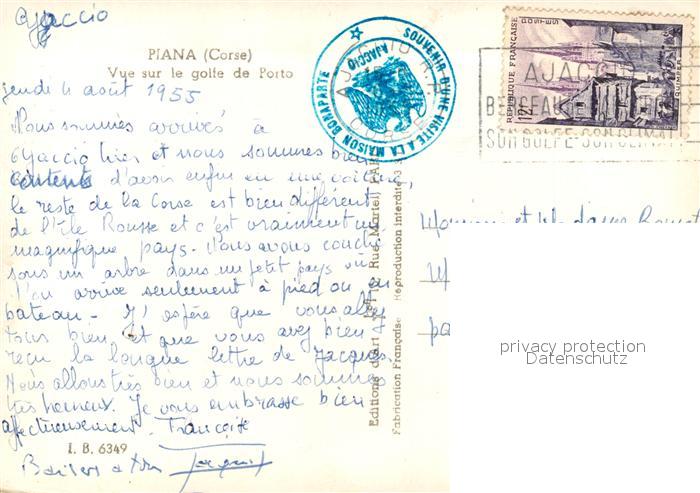 Ajaccio
PIANA (Corse)
Vue sur le golfe de Porto
jeudi 4 août 1955
Nous sommes arrivés à
Ajaccio hier et nous sommes bien
contents d'avoir enfin eu une voiture,
le reste de la Corse est bien différent
de l'Ile Rousse et c'est vraiment un
magnifique pays. Nous avons couché
sous un arbre dans un petit pays où
l'on arrive seulement à pied ou en
bateau - J'espère que vous allez
tous bien et que vous avez bien
reçu la longue lettre de Jacques.
Nous allons très bien et nous sommes
très heureux. Je vous embrasse bien
affectueusement. Françoise
I. B. 6349
Baisers à tous Jacques
SOUVENIR D'UNE VISITE A LA MAISON BONAPARTE
AJACCIO
REPUBLIQUE FRANÇAISE
POSTES
12F
QUIMPER
AJACCIO
BERCEAU DE
SON GOLFE-SON CLIMAT
Editions d'Art
Rue Martel
Fabrication Française
Reproduction interdite
Monsieur et Madame
privacy protection
Datenschutz